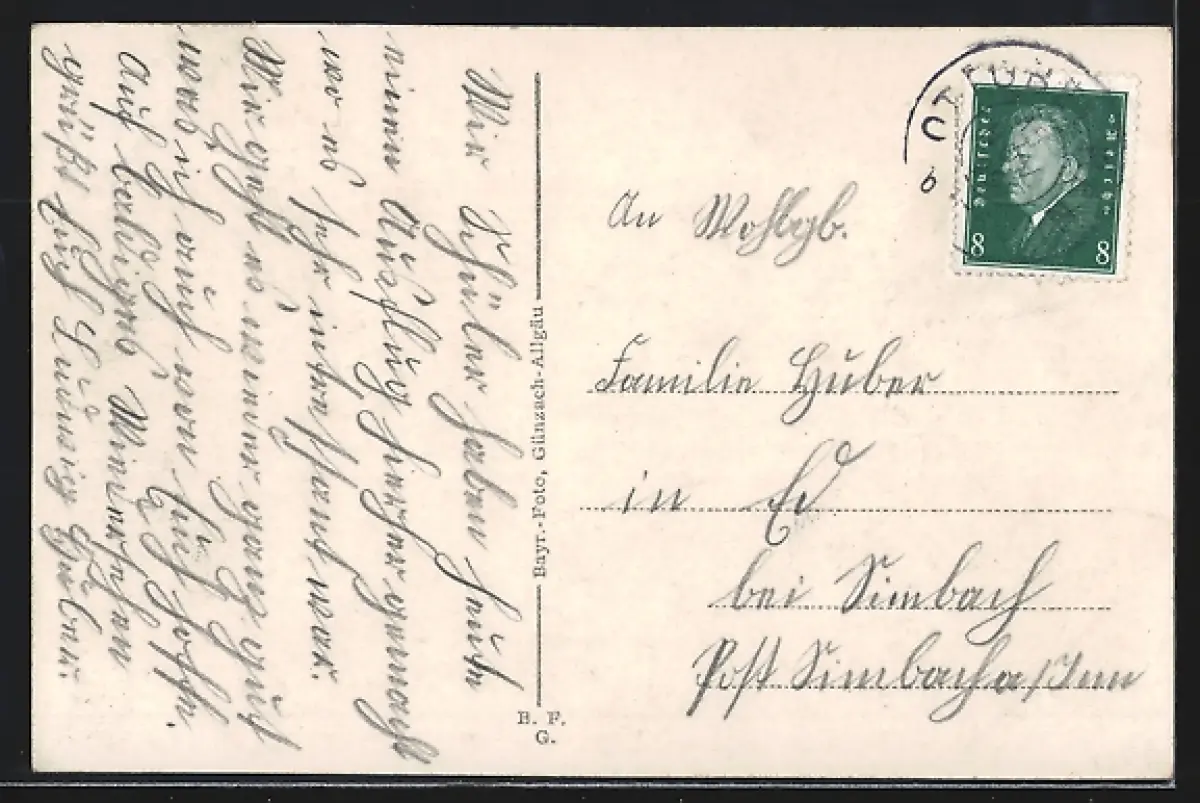 Wir Schüler haben heute
einen Ausflug hierher gemacht
wo es sehr interessant war.
Mir geht es immer ganz gut
was ich auch von Euch hoffe.
Auf baldiges Wiedersehen
grüßt Euch Ludwig Huber.
Bayr.-Foto, Günzach-Allgäu
B. F.
G.
Deutsches Reich
8 8
An Wohlgb.
Familie Huber
in Ed
bei Simbach
Post Simbach a/Inn